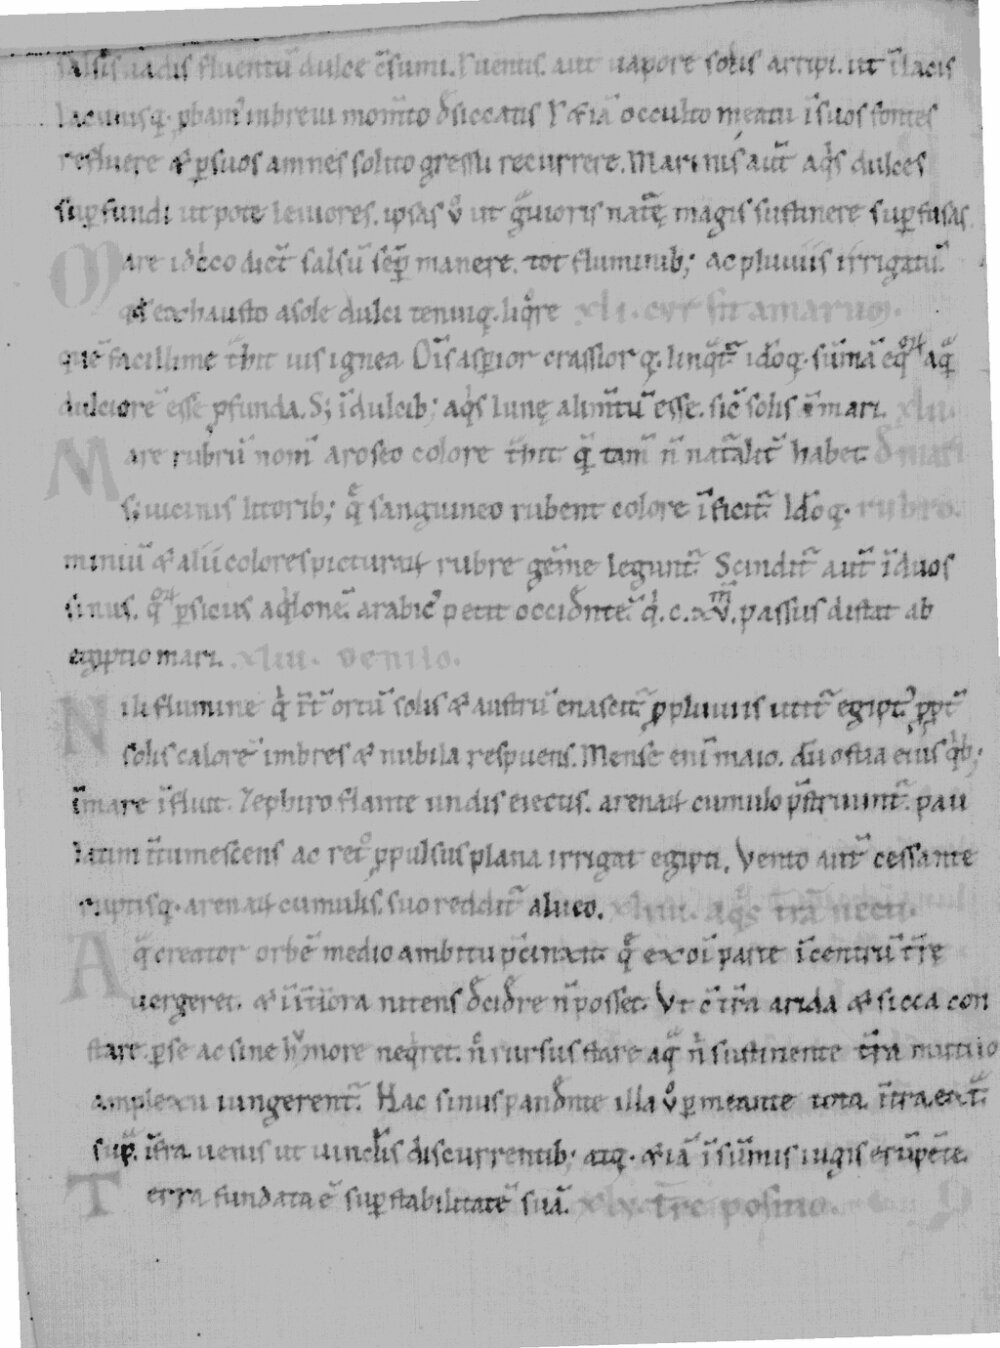 salsis uadis fluentū dulce c̄sumi. Ł uentis. aut uapore solis arripi. ut ī lacis
lacunisq;. ꝓbam᷒ in breui mom̄to đsiccatis Ł &iā occulto meatu ī suos fontes
refluere & ꝑ suos amnes solito gressu recurrere. Marinis aut̄ aq̇s dulces
suꝑfundi utpote leuiores. ipsas ů ut g̃uioris nat̃ę magis sustinere suꝑfusas.
Mare idc̊co dict̄ salsū sēꝑ manere. tot fluminib; ac pluuiis irrigatū.
qđ exhausto a sole dulci tenuiq;. liq̊re xli. cur sit amarum.
quē facillime t̄hit uis ignea. Oīs asꝑior crassiorq;. linq̇t᷑ idōq;. sūmā eq̊ꝝ aq̃
dulciorē esse ꝓfunda. S; ī dulcib; aq̇s lunę alim̄tū esse. sic̄ solis ī mari. xlii.
Mare rubrū nom̄ a roseo colore t̄hit q̄ tam̄ n̄ nat̃alit̄ habet đ mari
s; uicinis litorib; q̄ sanguineo rubent colore īficit᷑. Idōq;. rubro.
miniū & alii colores picturaꝝ rubre gēme legunt᷑. Scindit᷑ aut̄ ī duos
sinus. q̊ꝝ ꝑsicus aq̇lonē. arabic᷒ petit occiđntē. q̇. c. xv̄. passus distat ab
egiptio mari. xliii. De nilo.
Nili flumine q̇ īt̄ ortū solis & austrū enascit᷑ ꝓ pluuiis utit᷑ egipt᷒ ꝓpt̄
solis calorē imbres & nubila respuens. Mense enī maio. dū ostia eius q̇b;
ī mare īfluit. Zephiro flante undis eiectus. arenaꝝ cumulo p̄struunt᷑. pau
latim ītumescens ac ret̊ ꝓpulsus plana irrigat egipti. Vento aut̄ cessante
ruptisq;. arenaꝝ cumulis. suo reddit᷑ alueo. xliiii. aq̃s t̄ra necti.
Aq̃ creator orbē medio ambitu p̄cinxit. q̄ ex oī parte ī centrū t̄re
uergeret. & ī īt̄iora nitens đciđre n̄ posset. Vt c̄ t̄ra arida & sicca con
stare. ꝑ se ac sine hůmore neq̇ret. n̄ rursus stare aq̃ n̄ sustinente t̄ra mutuo
amplexu iungerent᷑. Hac sinus panđnte illa ů ꝑmeante tota. īt̃. ext̃.
sup̃. īf̃ra. uenis ut uinc̄lis discurrentib; atq;. &iā ī sūmis iugis erūpētē.
Terra fundata ē suꝑ stabilitatē suā. xlv. t̄re positio.